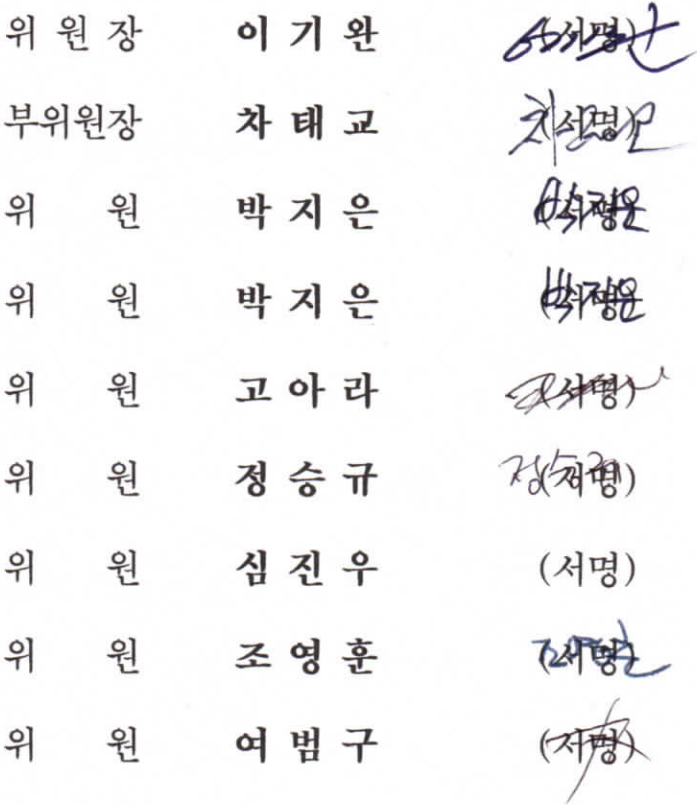 위 원 장 이 기 완 (서명)
부위원장 차 태 교 (서명)
위 원 박 지 은 (서명)
위 원 박 지 은 (서명)
위 원 고 아 라 (서명)
위 원 정 승 규 (서명)
위 원 심 진 우 (서명)
위 원 조 영 훈 (서명)
위 원 여 범 구 (서명)